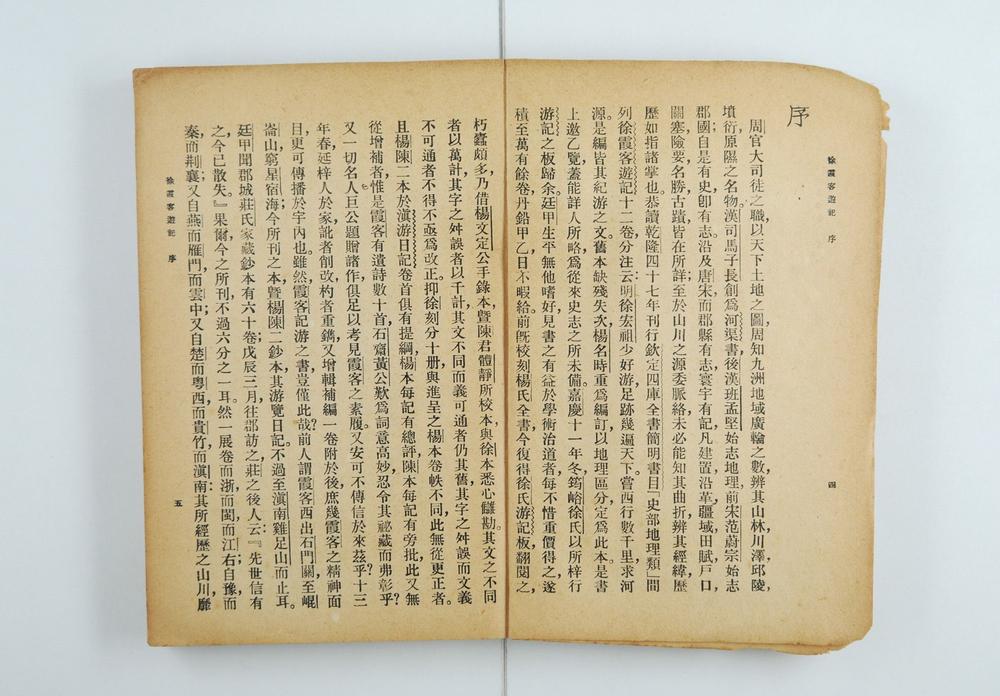 徐霞客遊記 序
四
序
周官大司徒之職以天下土地之圖周知九洲地域廣輪之數辨其山林川澤邱陵,
墳衍原隰之名物漢司馬子長創爲河渠書後漢班孟堅始志地理前宋范蔚宗始志
郡國自是有史卽有志沿及唐宋而郡縣有志寰宇有記凡建置沿革疆域田賦戶口,
關塞險要名勝古蹟皆在所詳;至於山川之源委脈絡未必能知其曲折辨其經緯歷
歷如指諸掌也。恭讀乾隆四十七年刊行欽定四庫全書簡明書目「史部地理類」間
列徐霞客遊記十二卷分注云明徐宏祖少好游足跡幾遍天下。嘗西行數千里求河
源。是編皆其紀游之文舊本缺殘失次楊名時重爲編訂以地理區分定爲此本。是書
上邀乙覽蓋能詳人所略爲從來史志之所未備。嘉慶十一年冬筠峪徐氏以所梓行
游記之板歸余。廷甲生平無他嗜好見書之有益於學術治道者每不惜重價得之遂
積至萬有餘卷丹鉛甲乙日不暇給。前旣校刻楊氏全書今復得徐氏游記板翻閱之,
朽蠹頗多乃借楊文定公手錄本暨陳君體靜所校本與徐本悉心讎勘。其文之不同
者以萬計其字之舛誤者以千計其文不同而義可通者仍其舊其字之舛誤而文義
不可通者不得不亟爲改正。抑徐刻分十册與進呈之楊本卷帙不同此無從更正者。
且楊陳二本於滇游日記卷首俱有提綱楊本每記有總評陳本每記有旁批此又無
從增補者。惟是霞客有遺詩數十首石齋黃公歎爲詞意高妙忍令其祕藏而弗彰乎?
又一切名人巨公題贈諸作俱足以考見霞客之素履。又安可不傳信於來茲乎?十三
年春延梓人於家訛者削改朽者重鐫又增輯補編一卷附於後庶幾霞客之精神面
目更可傳播於宇內也。雖然霞客記游之書豈僅此哉?前人謂霞客西出石門關至崐
崙山窮星宿海今所刊之本暨楊陳二鈔本其游覽日記不過至滇南雞足山而止耳。
廷甲聞郡城莊氏家藏鈔本有六十卷戊辰三月往郡訪之莊之後人云:『先世信有
之,今已散失。』果爾今之所刊不過六分之一耳。然一展卷而浙而閩而江右自豫而
秦而荆襄又自燕而雁門而雲中又自楚而粵西而貴竹而滇南其所經歷之山川靡
徐霞客遊記 序
五